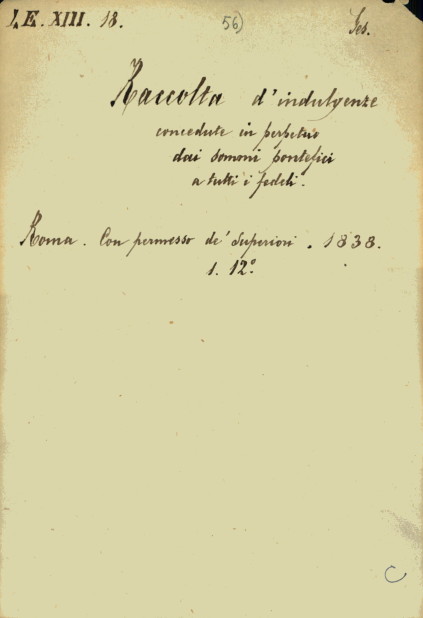 I.E. XIII. 18.
56)
Ges.
Raccolta d'indulgenze
concedute in perpetuo
dai sommi pontefici
a tutti i fedeli.
Roma. Con permesso de' Superiori. 1838.
1. 12°.
C